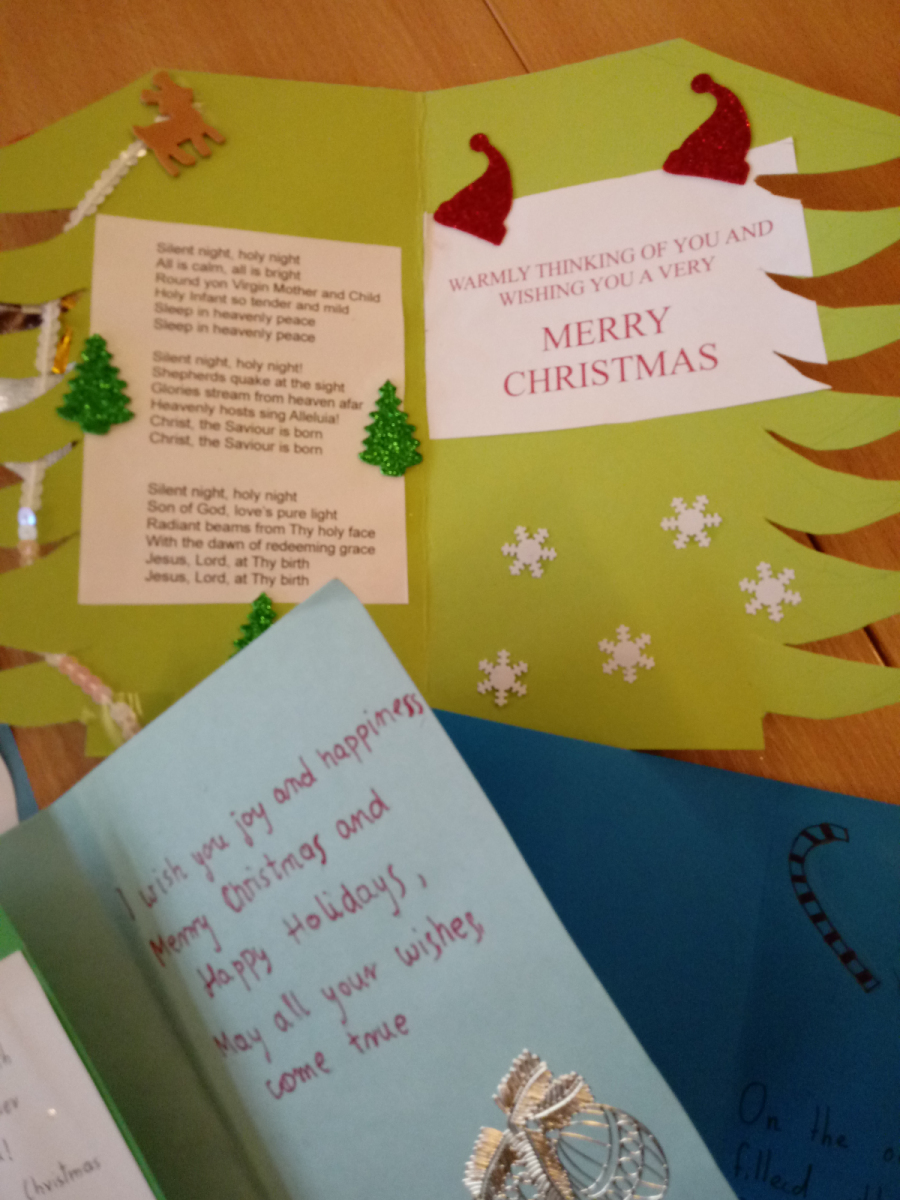 Silent night, holy night
All is calm, all is bright
Round yon Virgin Mother and Child
Holy Infant so tender and mild
Sleep in heavenly peace
Sleep in heavenly peace
Silent night, holy night!
Shepherds quake at the sight
Glories stream from heaven afar
Heavenly hosts sing Alleluia!
Christ, the Saviour is born
Christ, the Saviour is born
Silent night, holy night
Son of God, love's pure light
Radiant beams from Thy holy face
With the dawn of redeeming grace
Jesus, Lord, at Thy birth
Jesus, Lord, at Thy birth
WARMLY THINKING OF YOU AND
WISHING YOU A VERY
MERRY
CHRISTMAS
I wish you joy and happiness
Merry Christmas and
Happy Holidays,
May all your wishes
come true
Christmas
On the
filled